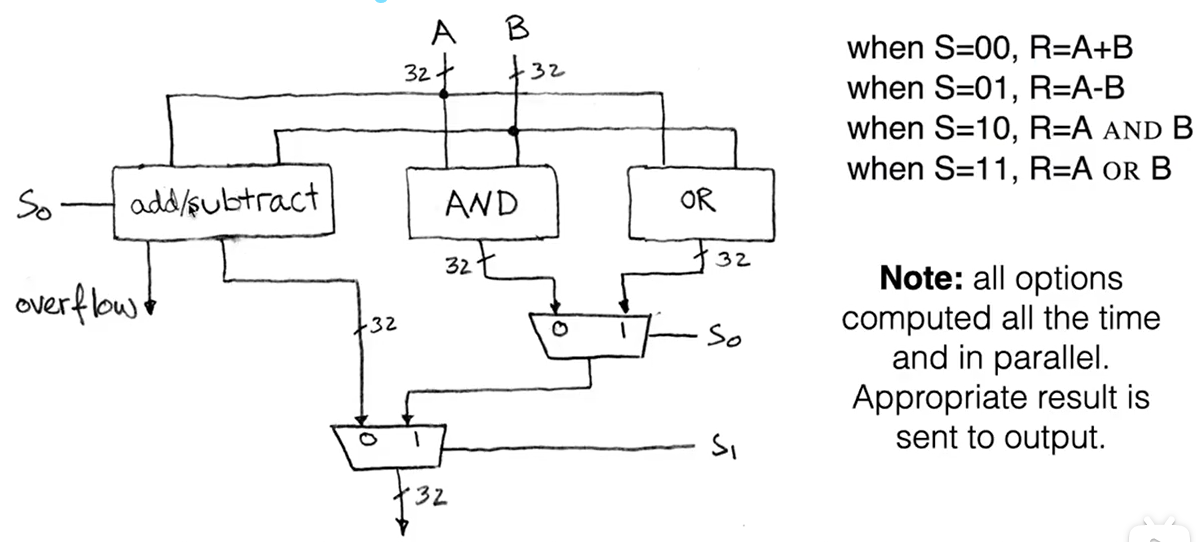 A B
32 32
S₀ add/subtract AND OR
32 32
overflow
32
0 1 S₀
0 1 S₁
32
when S=00, R=A+B
when S=01, R=A-B
when S=10, R=A AND B
when S=11, R=A OR B
Note: all options
computed all the time
and in parallel.
Appropriate result is
sent to output.